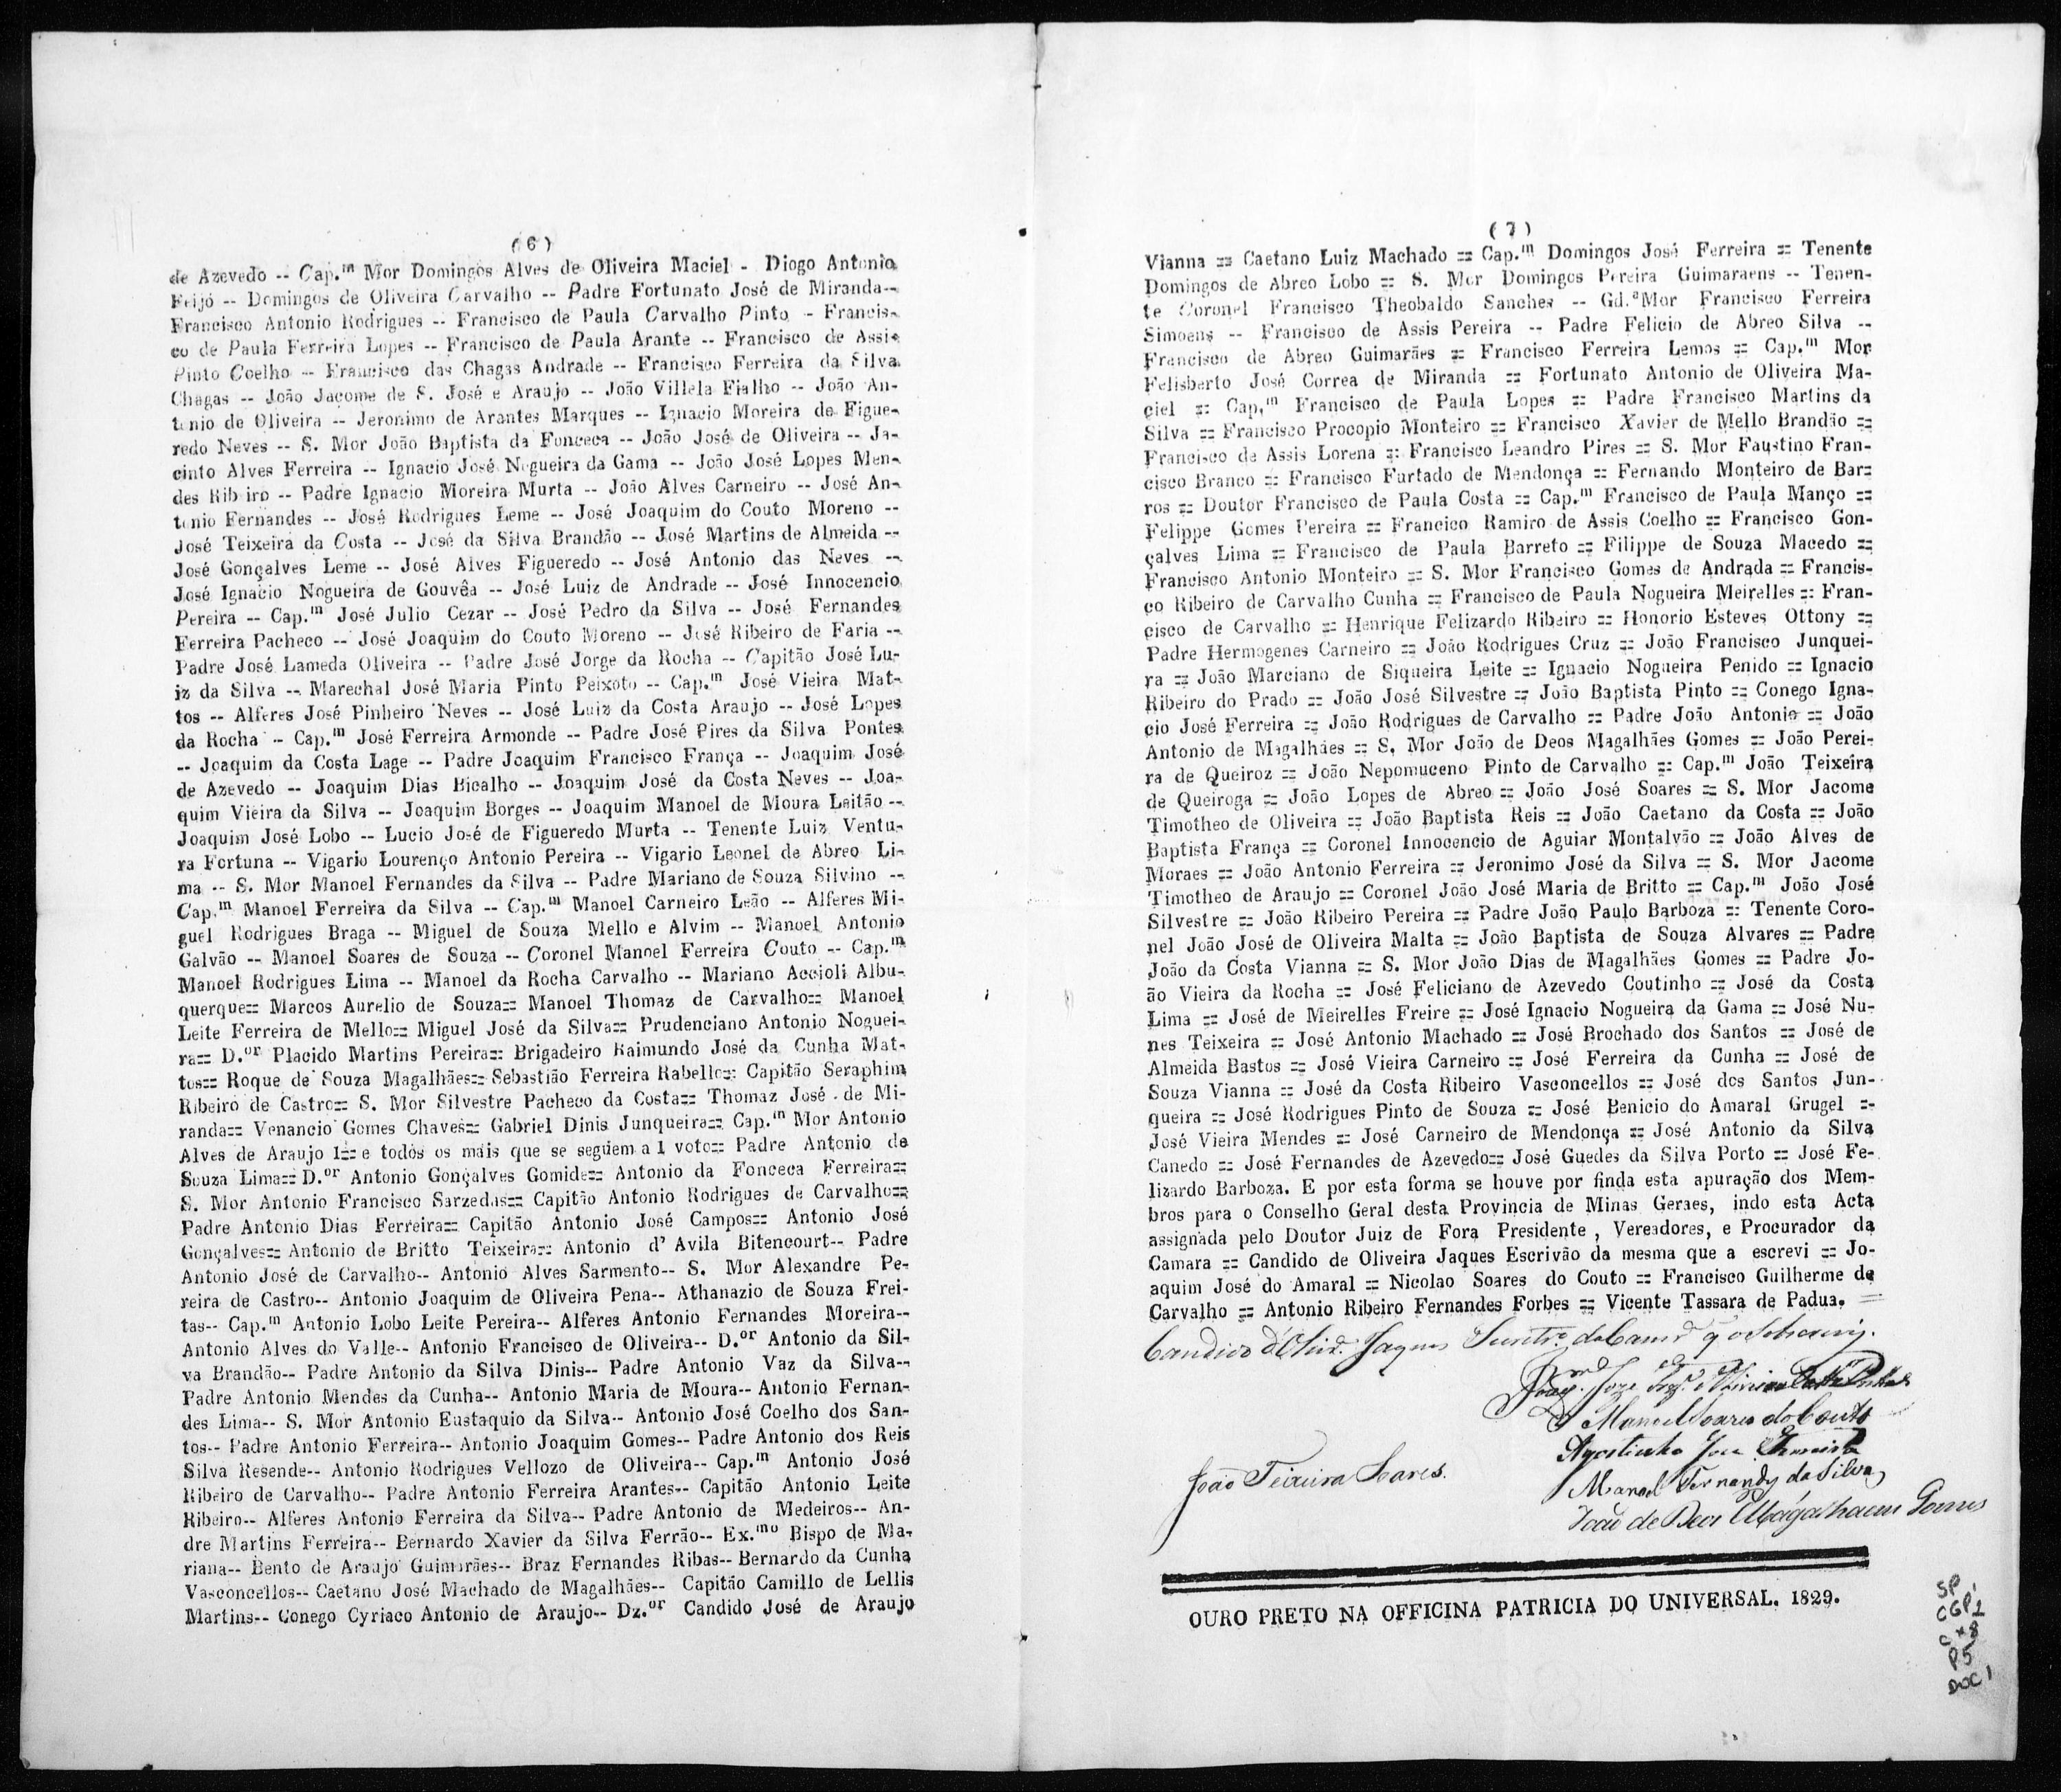 ( 6 )
de Azevedo -- Cap.m Mor Domingos Alves de Oliveira Maciel - Diogo Antonio
Feijó -- Domingos de Oliveira Carvalho -- Padre Fortunato José de Miranda--
Francisco Antonio Rodrigues -- Francisco de Paula Carvalho Pinto - Francis-
co de Paula Ferreira Lopes -- Francisco de Paula Arante -- Francisco de Assis
Pinto Coelho -- Francisco das Chagas Andrade -- Francisco Ferreira da Silva
Chagas -- João Jacome de S. José e Araujo -- João Villela Fialho -- João An-
tonio de Oliveira -- Jeronimo de Arantes Marques -- Ignacio Moreira de Figue-
redo Neves -- S. Mor João Baptista da Fonceca -- João José de Oliveira -- Ja-
cinto Alves Ferreira -- Ignacio José Nogueira da Gama -- João José Lopes Men-
des Ribeiro -- Padre Ignacio Moreira Murta -- João Alves Carneiro -- José An-
tonio Fernandes -- José Rodrigues Leme -- José Joaquim do Couto Moreno --
José Teixeira da Costa -- José da Silva Brandão -- José Martins de Almeida --
José Gonçalves Leme -- José Alves Figueredo -- José Antonio das Neves --
José Ignacio Nogueira de Gouvêa -- José Luiz de Andrade -- José Innocencio
Pereira -- Cap.m José Julio Cezar -- José Pedro da Silva -- José Fernandes
Ferreira Pacheco -- José Joaquim do Couto Moreno -- José Ribeiro de Faria --
Padre José Lameda Oliveira -- Padre José Jorge da Rocha -- Capitão José Lu-
iz da Silva -- Marechal José Maria Pinto Peixoto -- Cap.m José Vieira Mat-
tos -- Alferes José Pinheiro Neves -- José Luiz da Costa Araujo -- José Lopes
da Rocha - Cap.m José Ferreira Armonde -- Padre José Pires da Silva Pontes
-- Joaquim da Costa Lage -- Padre Joaquim Francisco França -- Joaquim José
de Azevedo -- Joaquim Dias Bicalho -- Joaquim José da Costa Neves -- Joa-
quim Vieira da Silva -- Joaquim Borges -- Joaquim Manoel de Moura Leitão --
Joaquim José Lobo -- Lucio José de Figueredo Murta -- Tenente Luiz Ventu-
ra Fortuna -- Vigario Lourenço Antonio Pereira -- Vigario Leonel de Abreo Li-
ma -- S. Mor Manoel Fernandes da Silva -- Padre Mariano de Souza Silvino --
Cap.m Manoel Ferreira da Silva -- Cap.m Manoel Carneiro Leão -- Alferes Mi-
guel Rodrigues Braga -- Miguel de Souza Mello e Alvim -- Manoel Antonio
Galvão -- Manoel Soares de Souza -- Coronel Manoel Ferreira Couto -- Cap.m
Manoel Rodrigues Lima -- Manoel da Rocha Carvalho -- Mariano Accioli Albu-
querque== Marcos Aurelio de Souza== Manoel Thomaz de Carvalho== Manoel
Leite Ferreira de Mello== Miguel José da Silva== Prudenciano Antonio Noguei-
ra== D.or Placido Martins Pereira== Brigadeiro Raimundo José da Cunha Mat-
tos== Roque de Souza Magalhães== Sebastião Ferreira Rabello== Capitão Seraphim
Ribeiro de Castro== S. Mor Silvestre Pacheco da Costa== Thomaz José de Mi-
randa== Venancio Gomes Chaves== Gabriel Dinis Junqueira== Cap.m Mor Antonio
Alves de Araujo 1== e todos os mais que se seguem a 1 voto== Padre Antonio de
Souza Lima== D.or Antonio Gonçalves Gomide== Antonio da Fonceca Ferreira==
S. Mor Antonio Francisco Sarzedas== Capitão Antonio Rodrigues de Carvalho==
Padre Antonio Dias Ferreira== Capitão Antonio José Campos== Antonio José
Gonçalves== Antonio de Britto Teixeira== Antonio d' Avila Bitencourt-- Padre
Antonio José de Carvalho-- Antonio Alves Sarmento-- S. Mor Alexandre Pe-
reira de Castro-- Antonio Joaquim de Oliveira Pena-- Athanazio de Souza Frei-
tas-- Cap.m Antonio Lobo Leite Pereira-- Alferes Antonio Fernandes Moreira--
Antonio Alves do Valle-- Antonio Francisco de Oliveira-- D.or Antonio da Sil-
va Brandão-- Padre Antonio da Silva Dinis-- Padre Antonio Vaz da Silva--
Padre Antonio Mendes da Cunha-- Antonio Maria de Moura-- Antonio Fernan-
des Lima-- S. Mor Antonio Eustaquio da Silva-- Antonio José Coelho dos San-
tos-- Padre Antonio Ferreira-- Antonio Joaquim Gomes-- Padre Antonio dos Reis
Silva Resende-- Antonio Rodrigues Vellozo de Oliveira-- Cap.m Antonio José
Ribeiro de Carvalho-- Padre Antonio Ferreira Arantes-- Capitão Antonio Leite
Ribeiro-- Alferes Antonio Ferreira da Silva-- Padre Antonio de Medeiros-- An-
dre Martins Ferreira-- Bernardo Xavier da Silva Ferrão-- Ex.mo Bispo de Ma-
riana-- Bento de Araujo Guimarães-- Braz Fernandes Ribas-- Bernardo da Cunha
Vasconcellos-- Caetano José Machado de Magalhães-- Capitão Camillo de Lellis
Martins-- Conego Cyriaco Antonio de Araujo-- Dz.or Candido José de Araujo
( 7 )
Vianna == Caetano Luiz Machado == Cap.m Domingos José Ferreira == Tenente
Domingos de Abreo Lobo == S. Mor Domingos Pereira Guimaraens -- Tenen-
te Coronel Francisco Theobaldo Sanches -- Gd.a Mor Francisco Ferreira
Simoens -- Francisco de Assis Pereira -- Padre Felicio de Abreo Silva --
Francisco de Abreo Guimarães == Francisco Ferreira Lemos == Cap.m Mor
Felisberto José Correa de Miranda == Fortunato Antonio de Oliveira Ma-
ciel == Cap.m Francisco de Paula Lopes == Padre Francisco Martins da
Silva == Francisco Procopio Monteiro == Francisco Xavier de Mello Brandão ==
Francisco de Assis Lorena == Francisco Leandro Pires == S. Mor Faustino Fran-
cisco Branco == Francisco Furtado de Mendonça == Fernando Monteiro de Bar=
ros == Doutor Francisco de Paula Costa == Cap.m Francisco de Paula Manço ==
Felippe Gomes Pereira == Francico Ramiro de Assis Coelho == Francisco Gon-
çalves Lima == Francisco de Paula Barreto == Filippe de Souza Macedo ==
Francisco Antonio Monteiro == S. Mor Francisco Gomes de Andrada == Francis-
co Ribeiro de Carvalho Cunha == Francisco de Paula Nogueira Meirelles == Fran-
cisco de Carvalho == Henrique Felizardo Ribeiro == Honorio Esteves Ottony ==
Padre Hermogenes Carneiro == João Rodrigues Cruz == João Francisco Junquei-
ra == João Marciano de Siqueira Leite == Ignacio Nogueira Penido == Ignacio
Ribeiro do Prado == João José Silvestre == João Baptista Pinto == Conego Igna-
cio José Ferreira == João Rodrigues de Carvalho == Padre João Antonio == João
Antonio de Magalhães == S. Mor João de Deos Magalhães Gomes == João Perei-
ra de Queiroz == João Nepomuceno Pinto de Carvalho == Cap.m João Teixeira
de Queiroga == João Lopes de Abreo == João José Soares == S. Mor Jacome
Timotheo de Oliveira == João Baptista Reis == João Caetano da Costa == João
Baptista França == Coronel Innocencio de Aguiar Montalvão == João Alves de
Moraes == João Antonio Ferreira == Jeronimo José da Silva == S. Mor Jacome
Timotheo de Araujo == Coronel João José Maria de Britto == Cap.m João José
Silvestre == João Ribeiro Pereira == Padre João Paulo Barboza == Tenente Coro-
nel João José de Oliveira Malta == João Baptista de Souza Alvares == Padre
João da Costa Vianna == S. Mor João Dias de Magalhães Gomes == Padre Jo-
ão Vieira da Rocha == José Feliciano de Azevedo Coutinho == José da Costa
Lima == José de Meirelles Freire == José Ignacio Nogueira da Gama == José Nu-
nes Teixeira == José Antonio Machado == José Brochado dos Santos == José de
Almeida Bastos == José Vieira Carneiro == José Ferreira da Cunha == José de
Souza Vianna == José da Costa Ribeiro Vasconcellos == José dos Santos Jun-
queira == José Rodrigues Pinto de Souza == José Benicio do Amaral Grugel ==
José Vieira Mendes == José Carneiro de Mendonça == José Antonio da Silva
Canedo == José Fernandes de Azevedo== José Guedes da Silva Porto == José Fe-
lizardo Barboza. E por esta forma se houve por finda esta apuração dos Mem-
bros para o Conselho Geral desta Provincia de Minas Geraes, indo esta Acta
assignada pelo Doutor Juiz de Fora Presidente , Vereadores, e Procurador da
Camara == Candido de Oliveira Jaques Escrivão da mesma que a escrevi == Jo-
aquim José do Amaral == Nicolao Soares do Couto == Francisco Guilherme de
Carvalho == Antonio Ribeiro Fernandes Forbes == Vicente Tassara de Padua.
Candido d'Oliv.a Jaques
Manoel Soares do Couto
Agostinho José
João Teixeira Soares.
Manoel Fernandes da Silva
João de Deos Magalhaens Gomes
OURO PRETO NA OFFICINA PATRICIA DO UNIVERSAL. 1829.
SP
CGP1
CX8
P5
DOC 1